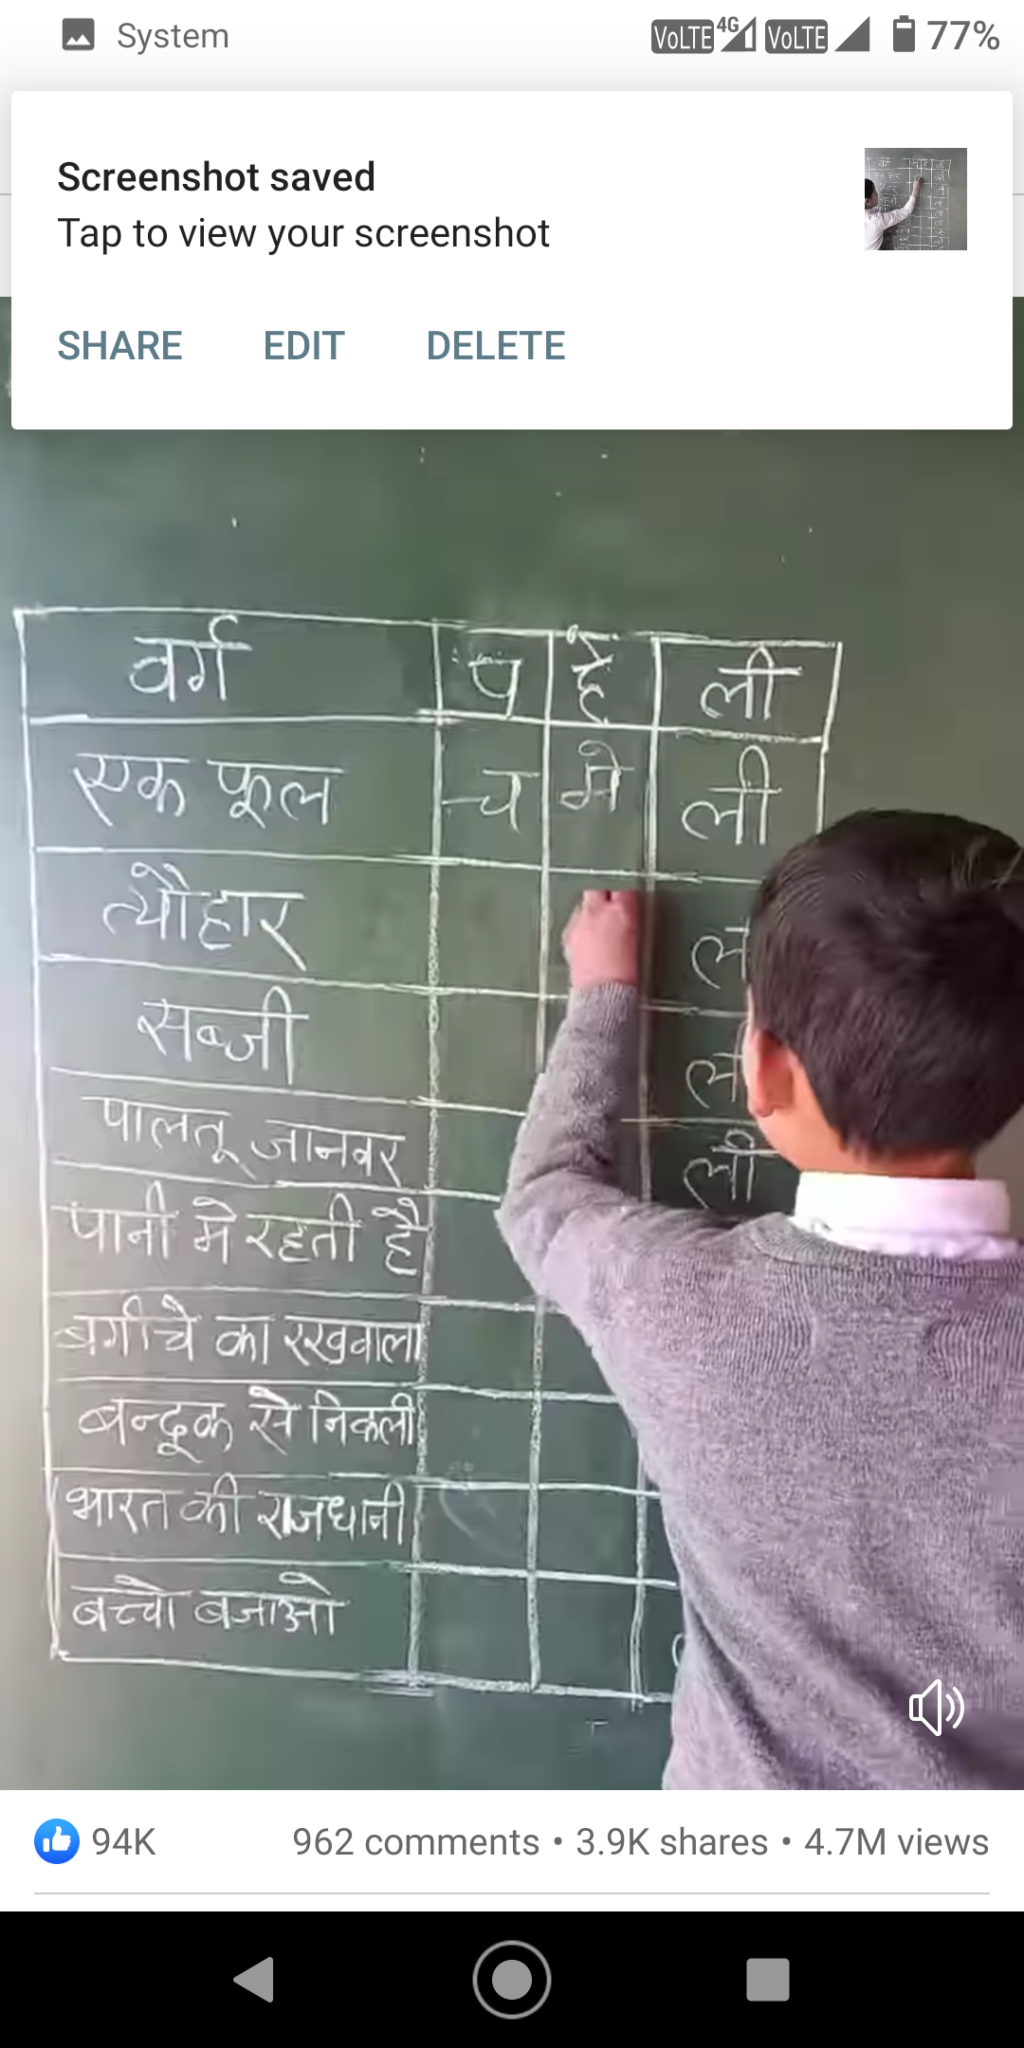 System
VoLTE 4G VoLTE 77%
Screenshot saved
Tap to view your screenshot
SHARE EDIT DELETE
वर्ग प हे ली
एक फूल च मे ली
त्यौहार
सब्जी
पालतू जानवर ली
पानी मे रहती है
बगीचे का रखवाला
बन्दूक से निकली
भारत की राजधानी
बच्चो बजाओ
94K 962 comments • 3.9K shares • 4.7M views